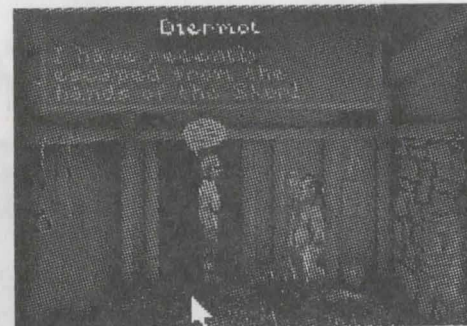 Diermot
I have recently
escaped from the
hands of the Skorl